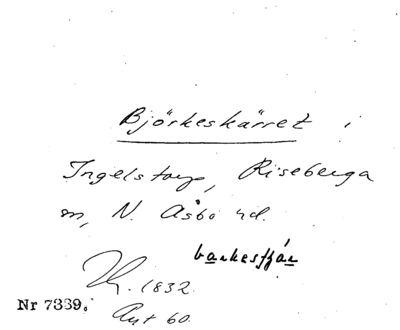 Björkeskärret i
Ingelstorp, Riseberga
sn, N. Åsbo hd.
1832.
Nr 7339.
Avt 60.